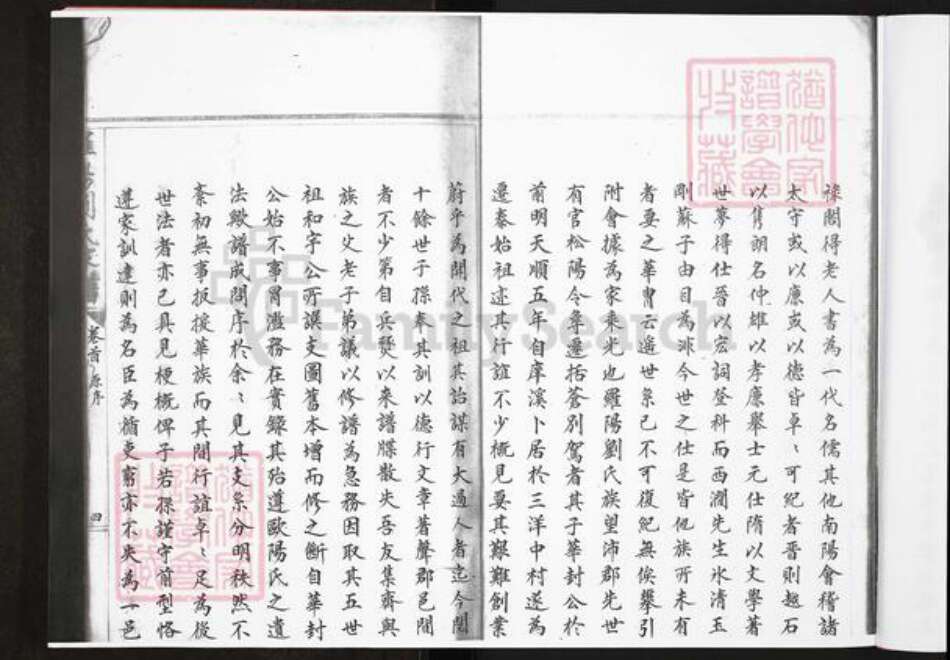 祿閣得老人書為一代名儒其他南陽會稽諸
太守或以廉或以德皆卓〻可紀者晉則越石
以雋朗名仲雄以孝廉舉士元仕隋以文學著
世夢得仕晉以宏詞登科而西澗先生氷清玉
剛蘇子由目為淮今世之仕是皆他族所未有
者要之華胄云遙世系已不可復紀無俟攀引
附會據為家乘光也羅陽劉氏族望沛郡先世
有官松陽令爭遷括蒼別駕者其子華封公於
前明天順五年自庠溪卜居於三洋中村遂為
遷泰始祖述其行誼不少概見要其艱難創業
蔚乎為開代之祖其詒謀有大過人者迄今閱
十餘世子孫奉其訓以德行文章著聲郡邑間
者不少第自兵燹以來譜牒散失吾友集齋與
族之父老子弟議以修譜為急務因取其五世
祖和宇公所譔支圖舊本增而修之斷自華封
公始不事冒濫務在實錄其殆遵歐陽氏之遺
法歟譜成問序於余〻見其支系分明秩然不
紊初無事扳援華族而其間行誼卓〻足為後
世法者亦已具見梗概俾子若孫謹守前型恪
遵家訓達則為名臣為循吏窮亦不失為一邑
卷首 原序
四
猶他家
譜學會
收藏
猶他家
譜學會
收藏
FamilySearch